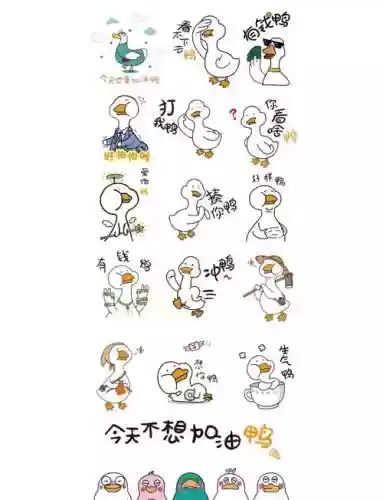 今天也要加油鸭
看不下去鸭
有钱鸭
好怕怕鸭
打我鸭
?
你看啥鸭
爱你鸭
揍你鸭
好胖鸭
有钱鸭
冲鸭~
想你鸭
生气鸭
今天不想加油鸭